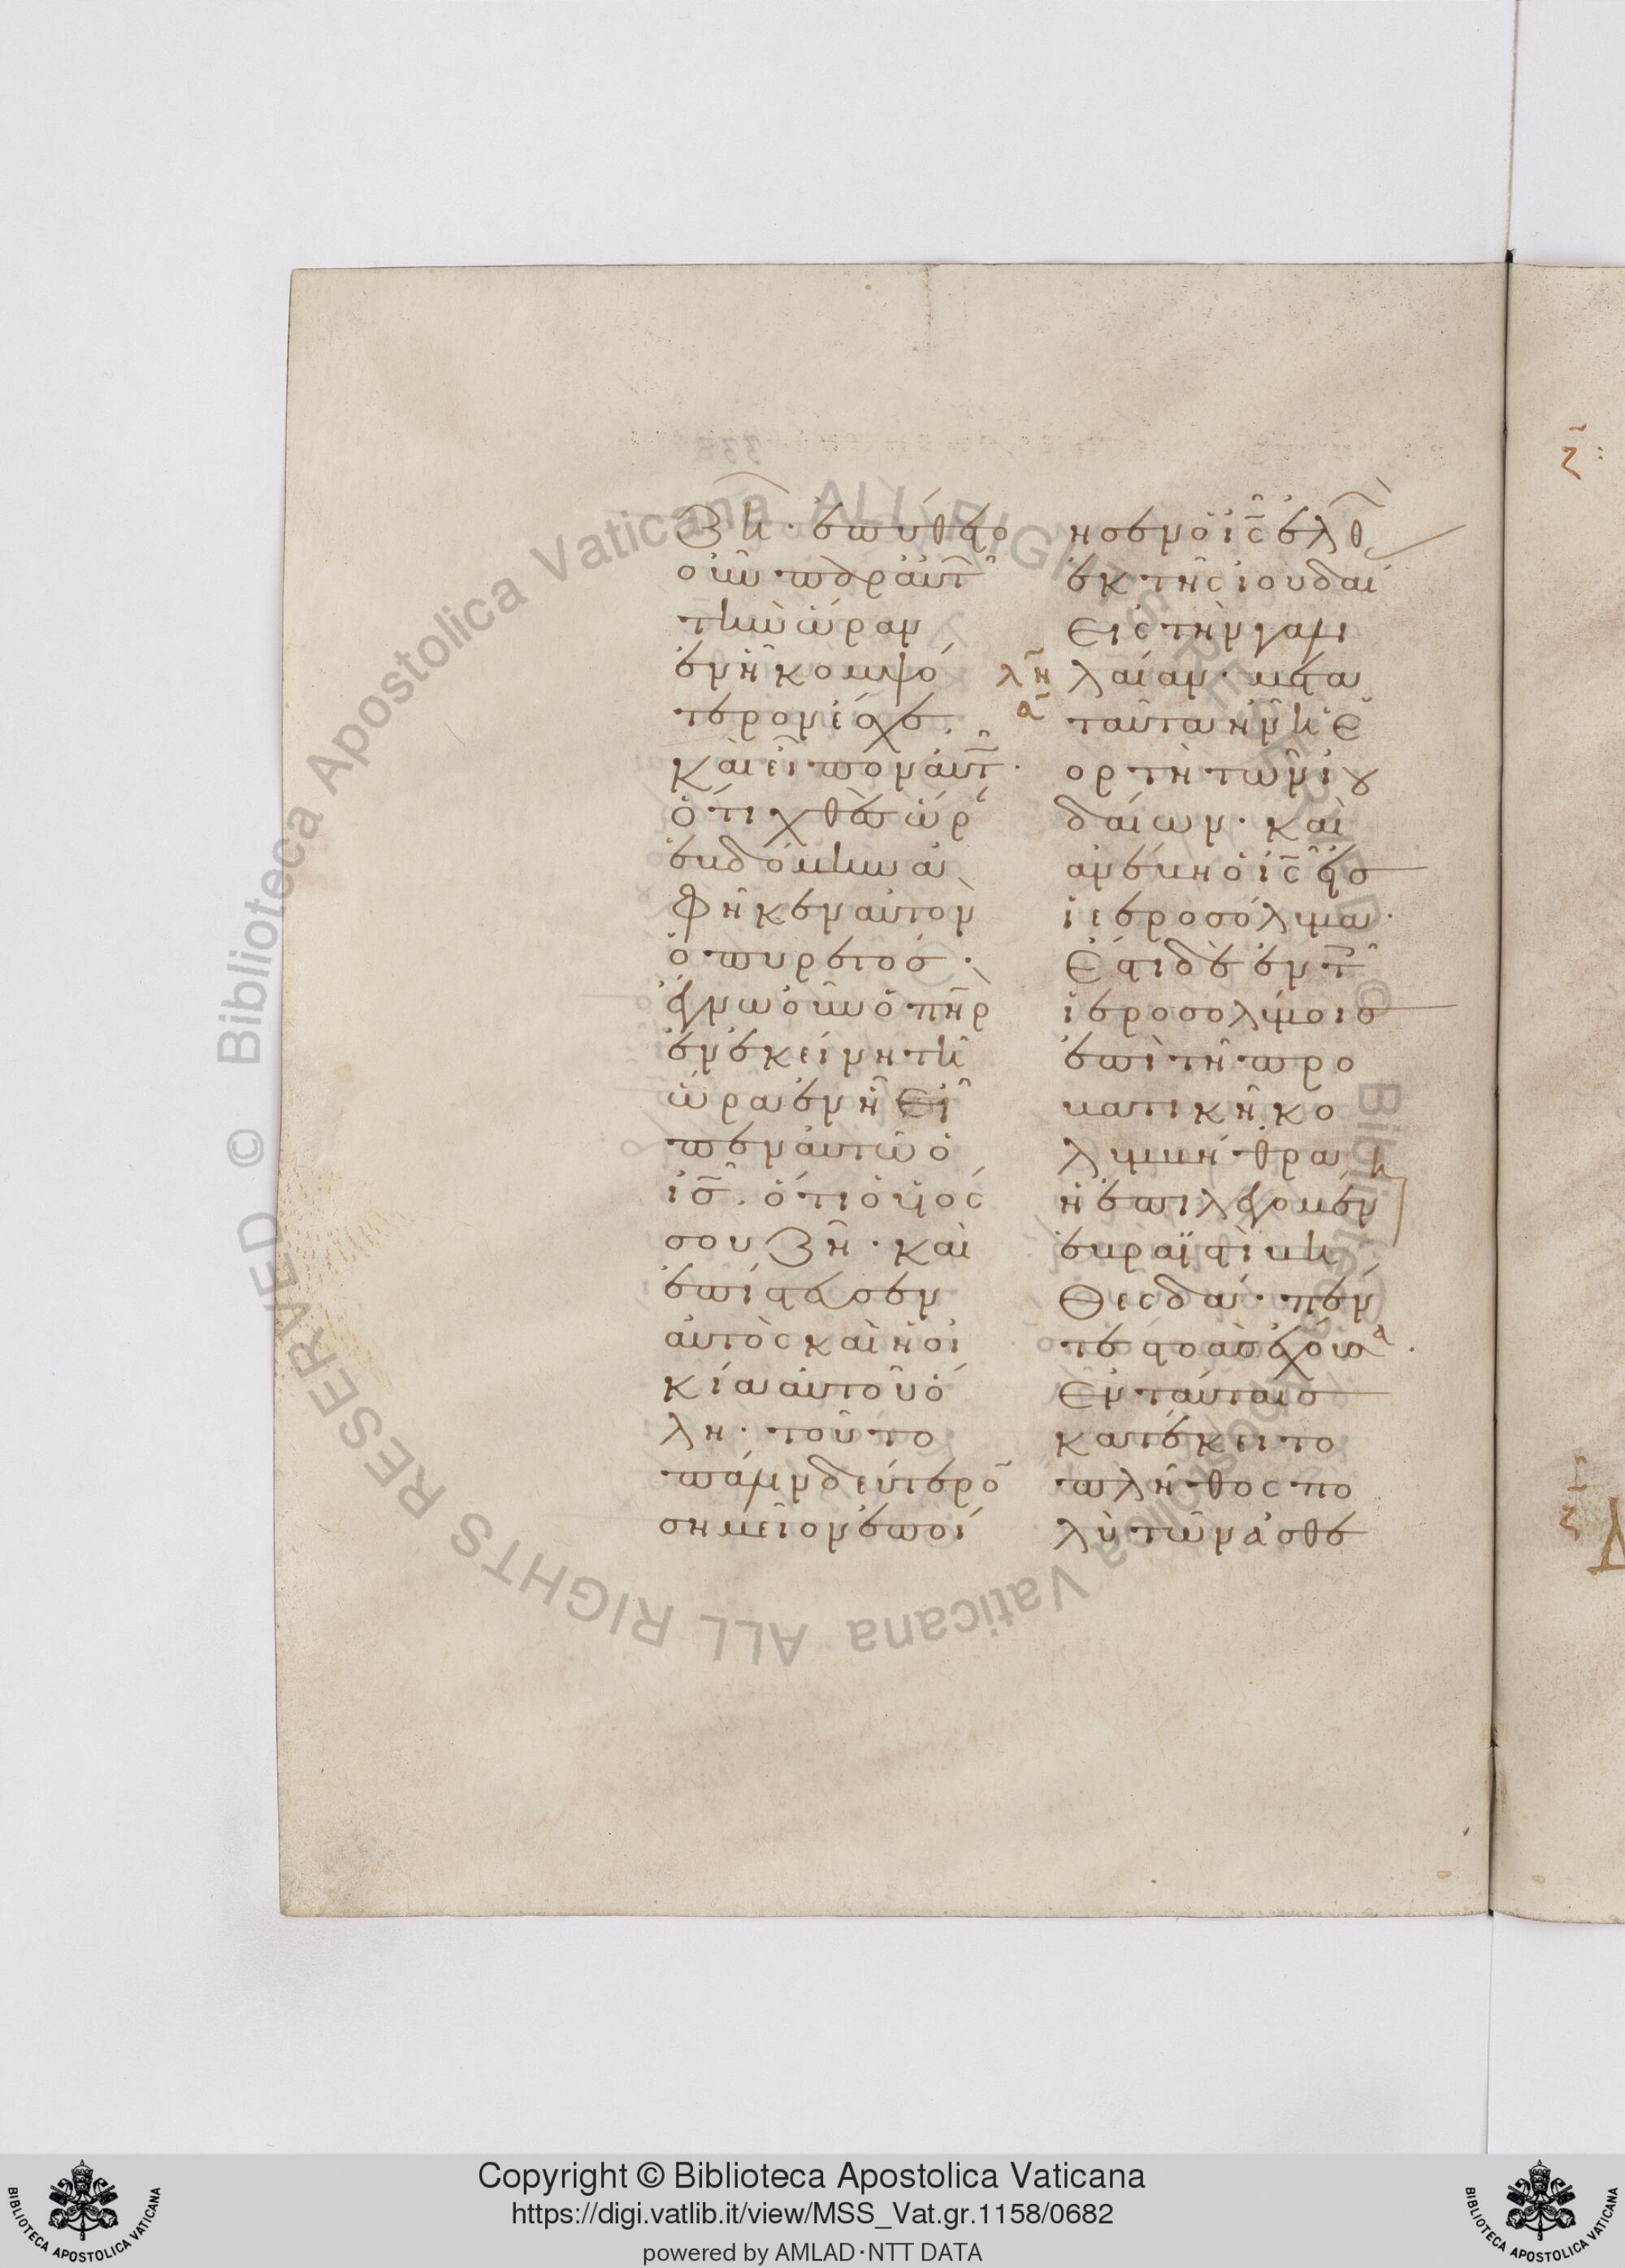 ζῆ· ἐπύθετο
οὖν παρ αὐτ̑
τὴν ὥραν
ἐν ᾗ κομψό
τερον ἔσχε.
καὶ εἶπον αὐτ̑.
ὅτι χθὲς ὥρ
ἑβδόμην ἀ
φῆκεν αὐτὸν
ὁ πυρετός·
ἔγνω οὖν ὁ π̅η̅ρ
ἐν ἐκείνη τῆ
ὥρα ἐν ᾗ εἶ
πεν αὐτῶ ὁ
ι̅ς̅. ὅτι ὁ υἱός
σου ζῆ· καὶ
ἐπίστευσεν
αὐτὸς καὶ ἡ οἰ
κία αὐτοῦ ὅ
λη· τοῦτο
πάλιν δεύτερο̅
σημεῖον ἐποί
ησεν ὁ ι̅ς̅ ἐλθ
ἐκ τῆς ἰουδαί
εἰς τὴν γαλι
λ̅η̅ λαίαν· μετα
α̅ ταῦτα ἦν ἡ ἑ
ορτὴ τῶν ἰου
δαίων· καὶ
ἀνέβη ὁ ι̅ς̅ εἰς
ἱεροσόλυμα·
Ἔστι δὲ ἐν τ̑
ἱεροσολύμοις
ἐπὶ τῆ προ
βατικῆ κο
λυμβήθρα
ἡ ἐπιλεγομένη
ἑβραϊστὶ βη
θεσδά· πέν
τε στοὰς ἔχουσα.
Ἐν ταύταις
κατέκειτο
πλῆθος πο
λὺ τῶν ἀσθε
Copyright © Biblioteca Apostolica Vaticana
https://digi.vatlib.it/view/MSS_Vat.gr.1158/0682
powered by AMLAD·NTT DATA
BIBLIOTECA APOSTOLICA VATICANA
BIBLIOTECA APOSTOLICA VATICANA
© Biblioteca Apostolica Vaticana ALL RIGHTS RESERVED
© Biblioteca Apostolica Vaticana ALL RIGHTS RESERVED